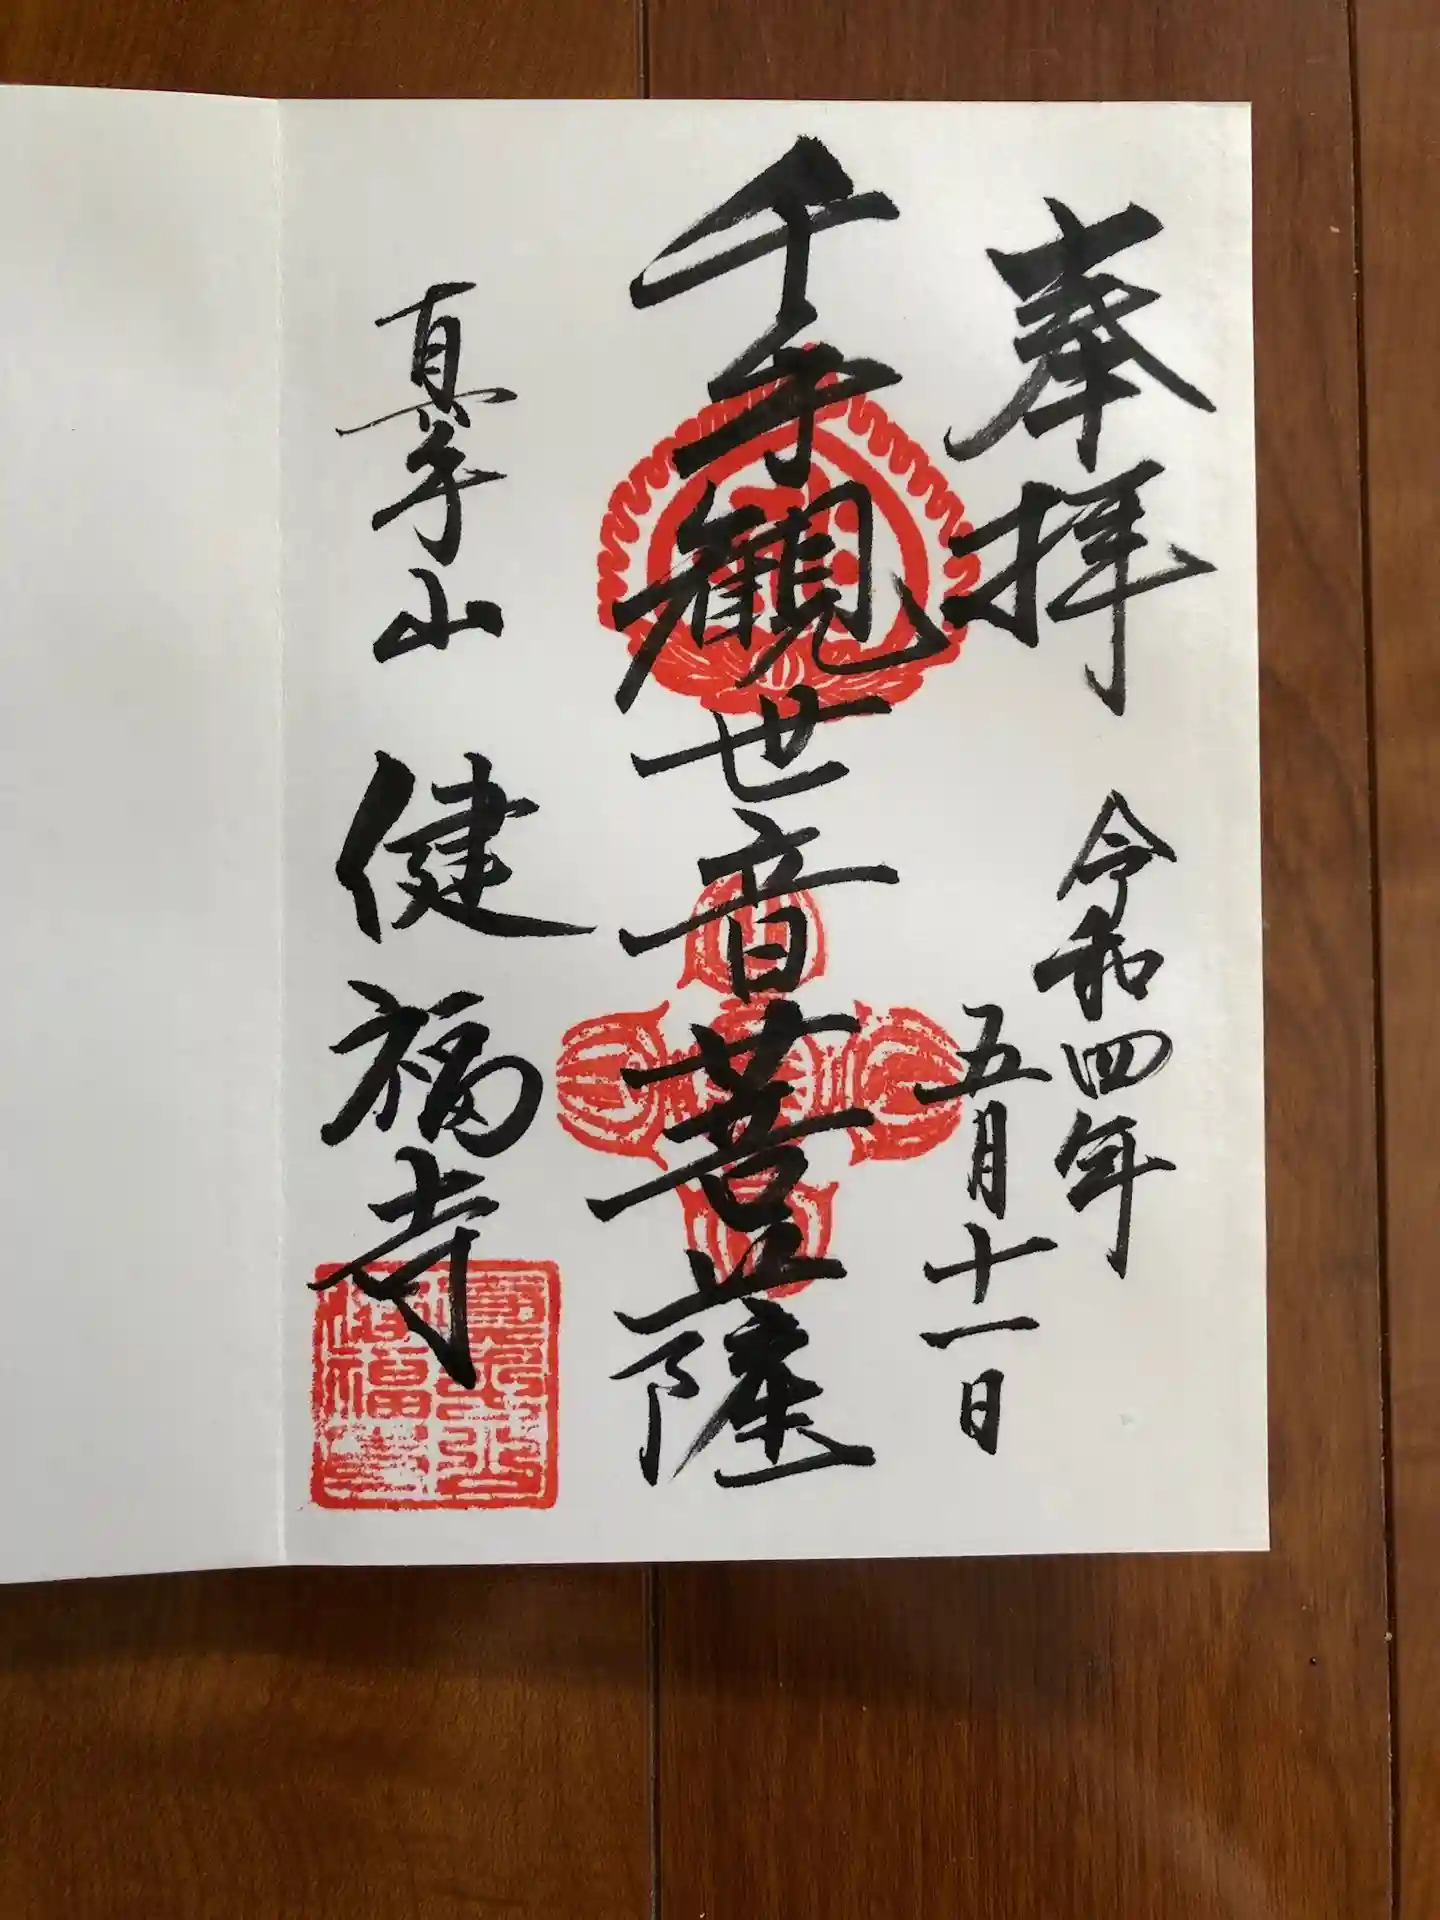 奉拝
令和四年
五月十一日
千手観世音菩薩
真手山 健福寺